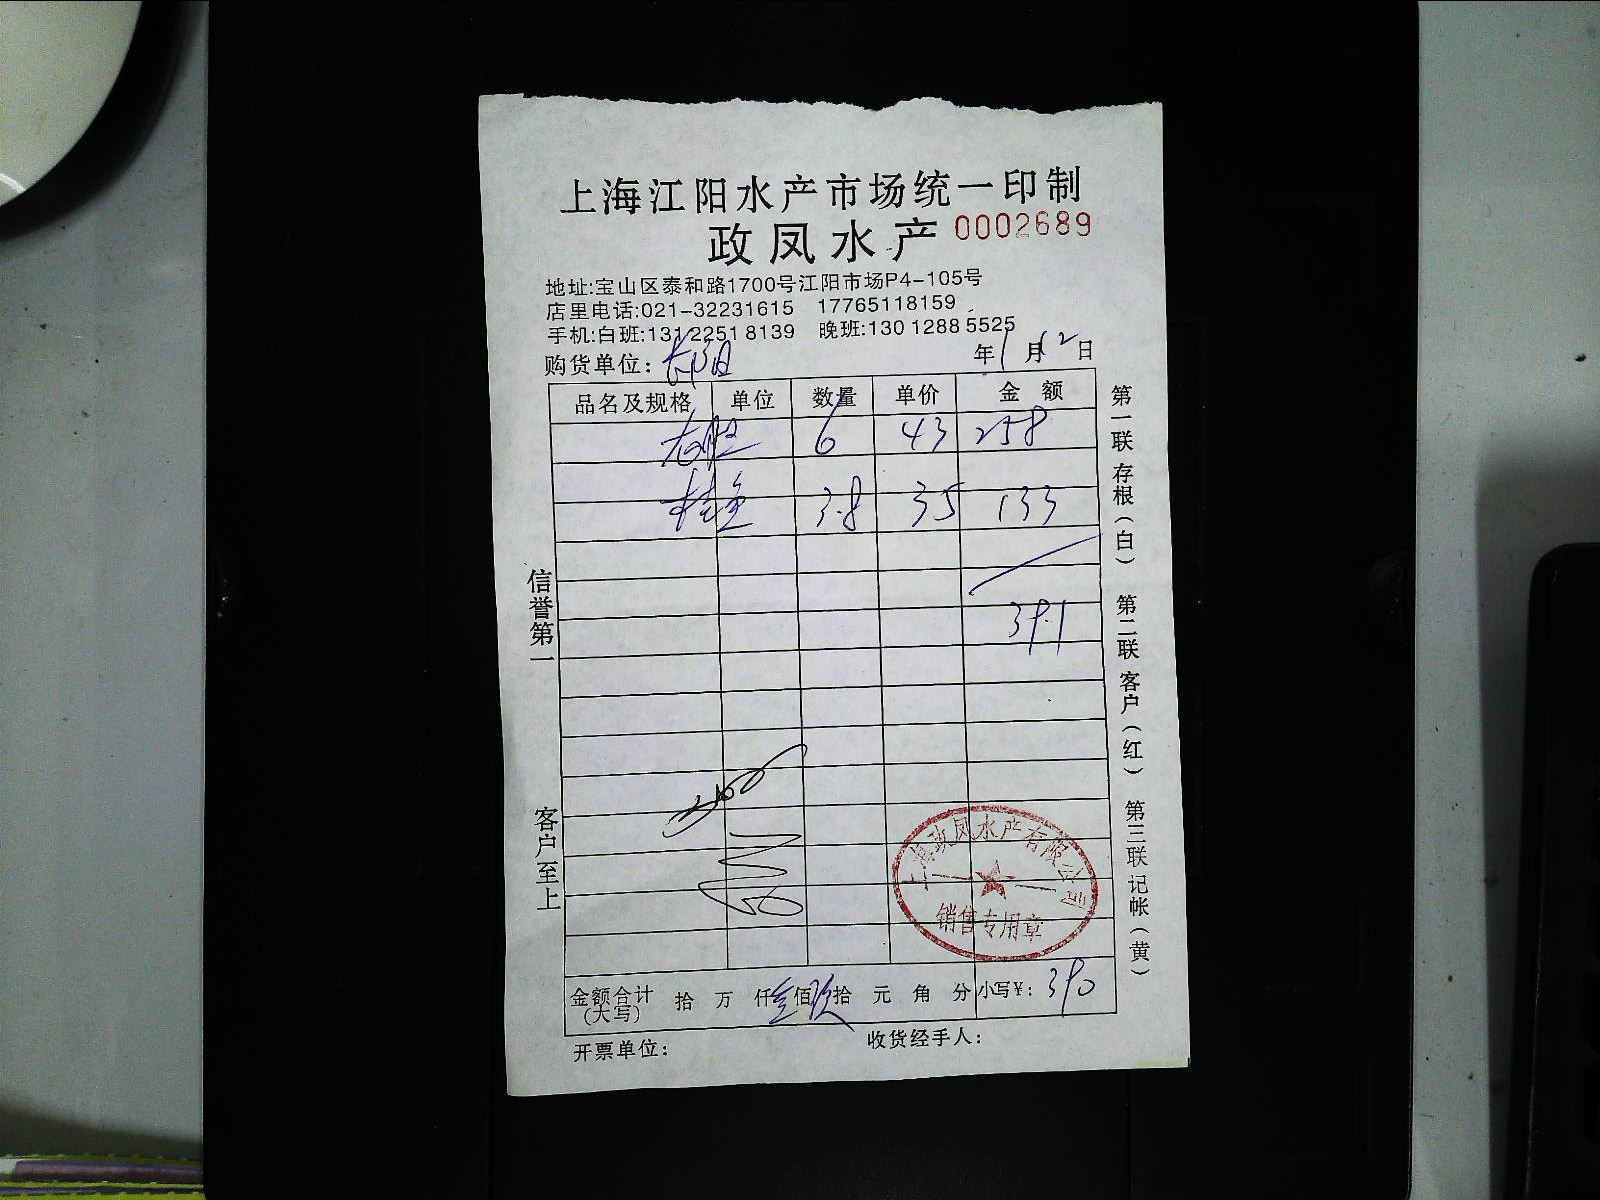 上海江阳水产市场统一印制
政凤水产 0002689
地址:宝山区泰和路1700号江阳市场P4-105号
店里电话:021-32231615 17765118159
手机:白班:13122518139 晚班:13012885525
购货单位: 长阳 年1月12日
品名及规格 单位 数量 单价 金额
6 43 258
桂鱼 3.8 35 133
391
信誉第一
客户至上
第一联存根(白) 第二联客户(红) 第三联记帐(黄)
上海政凤水产有限公司
销售专用章
金额合计(大写) 拾 万 仟叁佰玖拾 元 角 分 小写¥: 390
开票单位: 收货经手人: